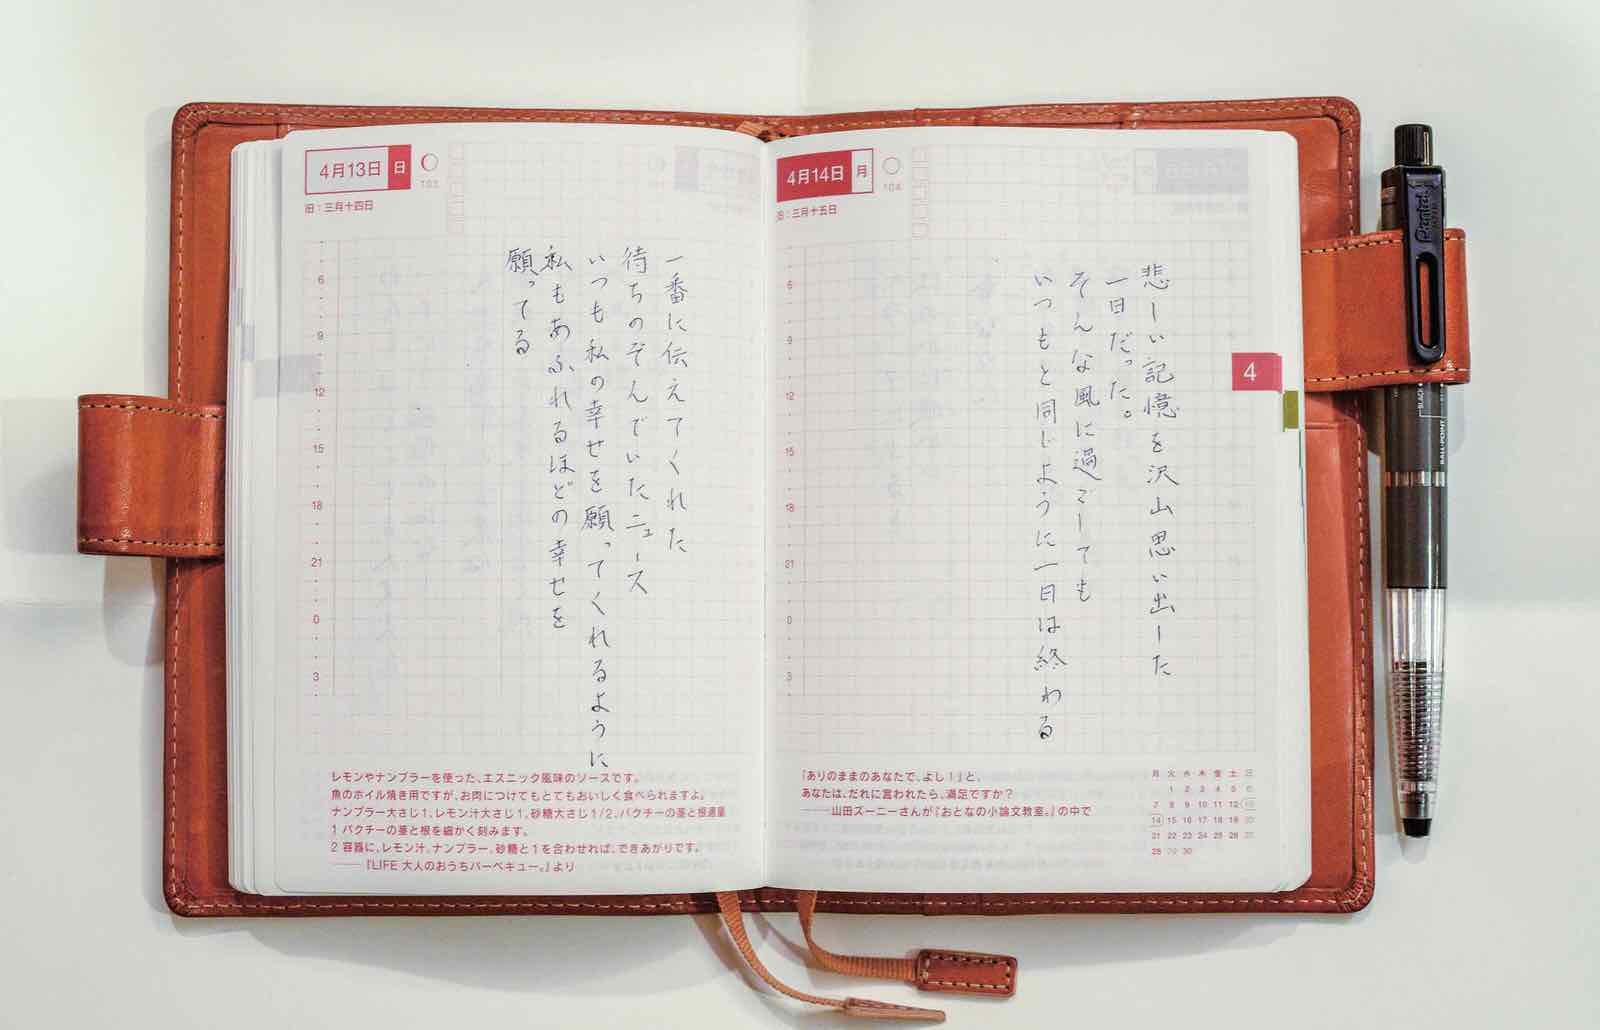 4月13日 日
103
旧：三月十四日
一番に伝えてくれた
待ちのぞんでいたニュース
いつも私の幸せを願ってくれるように
私もあふれるほどの幸せを
願ってる
6
9
12
15
18
21
0
3
レモンやナンプラーを使った、エスニック風味のソースです。
魚のホイル焼き用ですが、お肉につけてもとてもおいしく食べられますよ。
ナンプラー大さじ1、レモン汁大さじ1、砂糖大さじ1/2、パクチーの茎と根適量
1 パクチーの茎と根を細かく刻みます。
2 容器に、レモン汁、ナンプラー、砂糖と1を合わせれば、できあがりです。
――『LIFE 大人のおうちバーベキュー。』より
4月14日 月
104
旧：三月十五日
悲しい記憶を沢山思い出した
一日だった。
そんな風に過ごしても
いつもと同じように一日は終わる
6
9
12
15
18
21
0
3
4
「ありのままのあなたで、よし！」と、
あなたは、だれに言われたら、満足ですか？
――山田ズーニーさんが『おとなの小論文教室。』の中で
月 火 水 木 金 土 日
1 2 3 4 5 6
7 8 9 10 11 12 13
14 15 16 17 18 19 20
21 22 23 24 25 26 27
28 29 30
Pentel
BALLPOINT